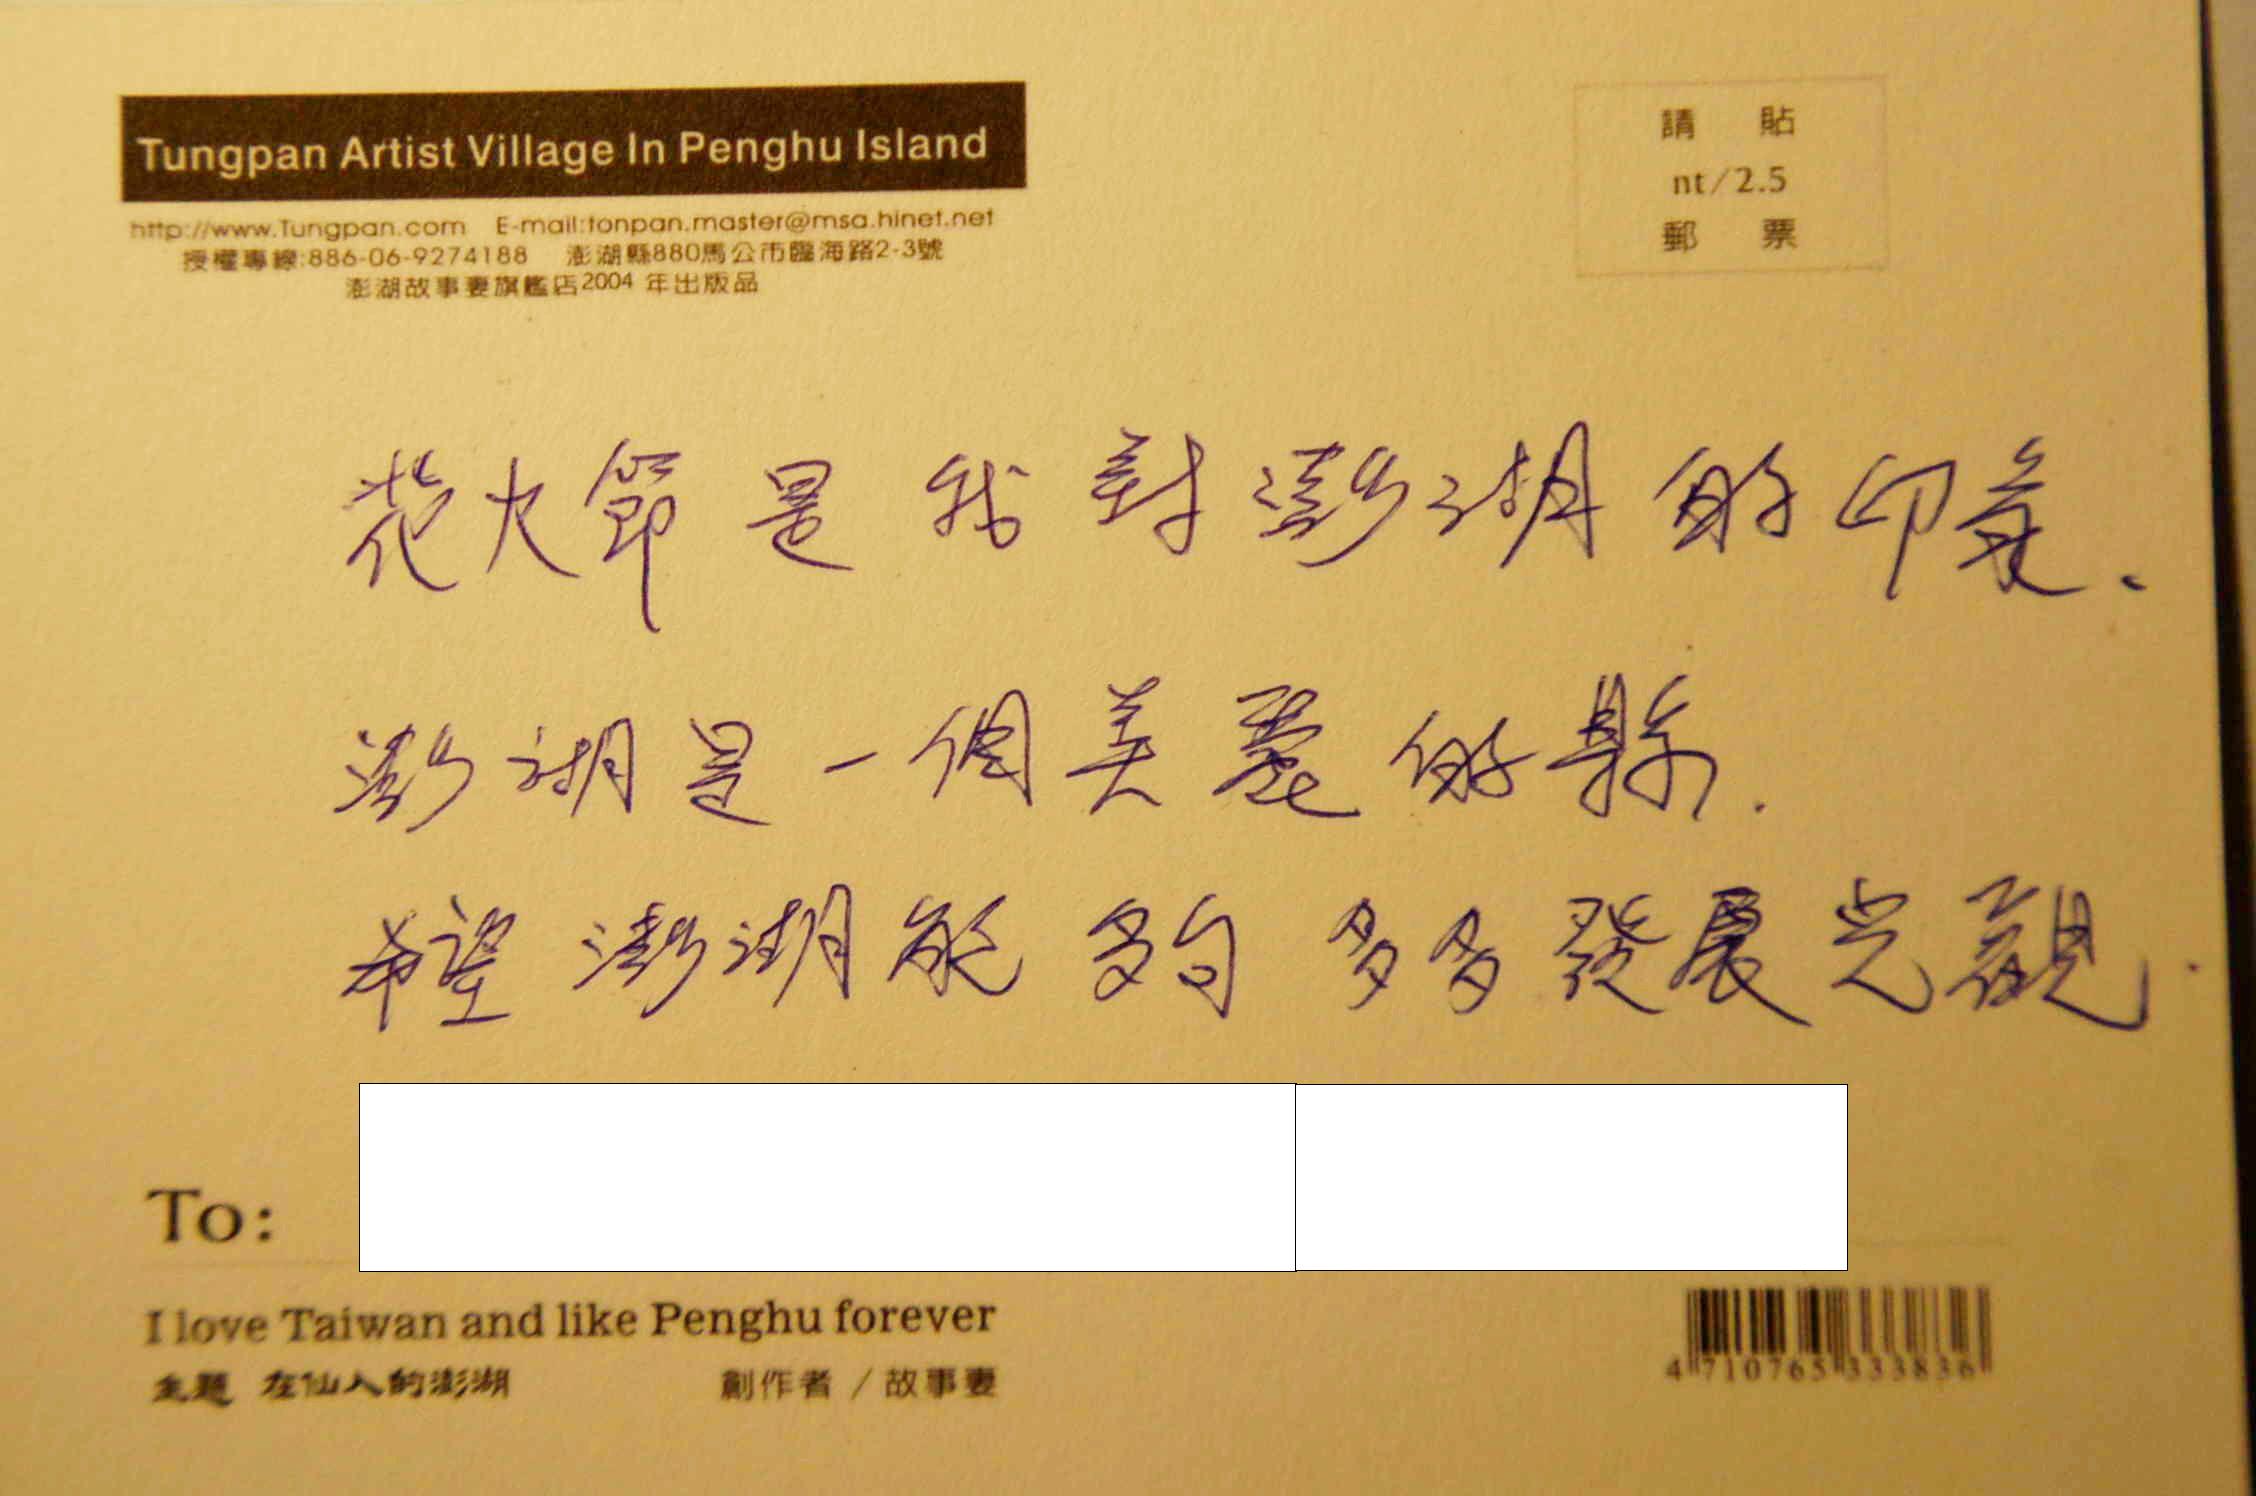 Tungpan Artist Village In Penghu Island
http://www.Tungpan.com E-mail:tonpan.master@msa.hinet.net
授權專線:886-06-9274188 澎湖縣880馬公市臨海路2-3號
澎湖故事妻旗艦店2004 年出版品
請 貼
nt/2.5
郵 票
花火節是我對澎湖的印象.
澎湖是一個美麗的縣.
希望澎湖能夠多多發展光觀.
To:
I love Taiwan and like Penghu forever
主題 在仙人的澎湖 創作者 / 故事妻
4 710765 333836